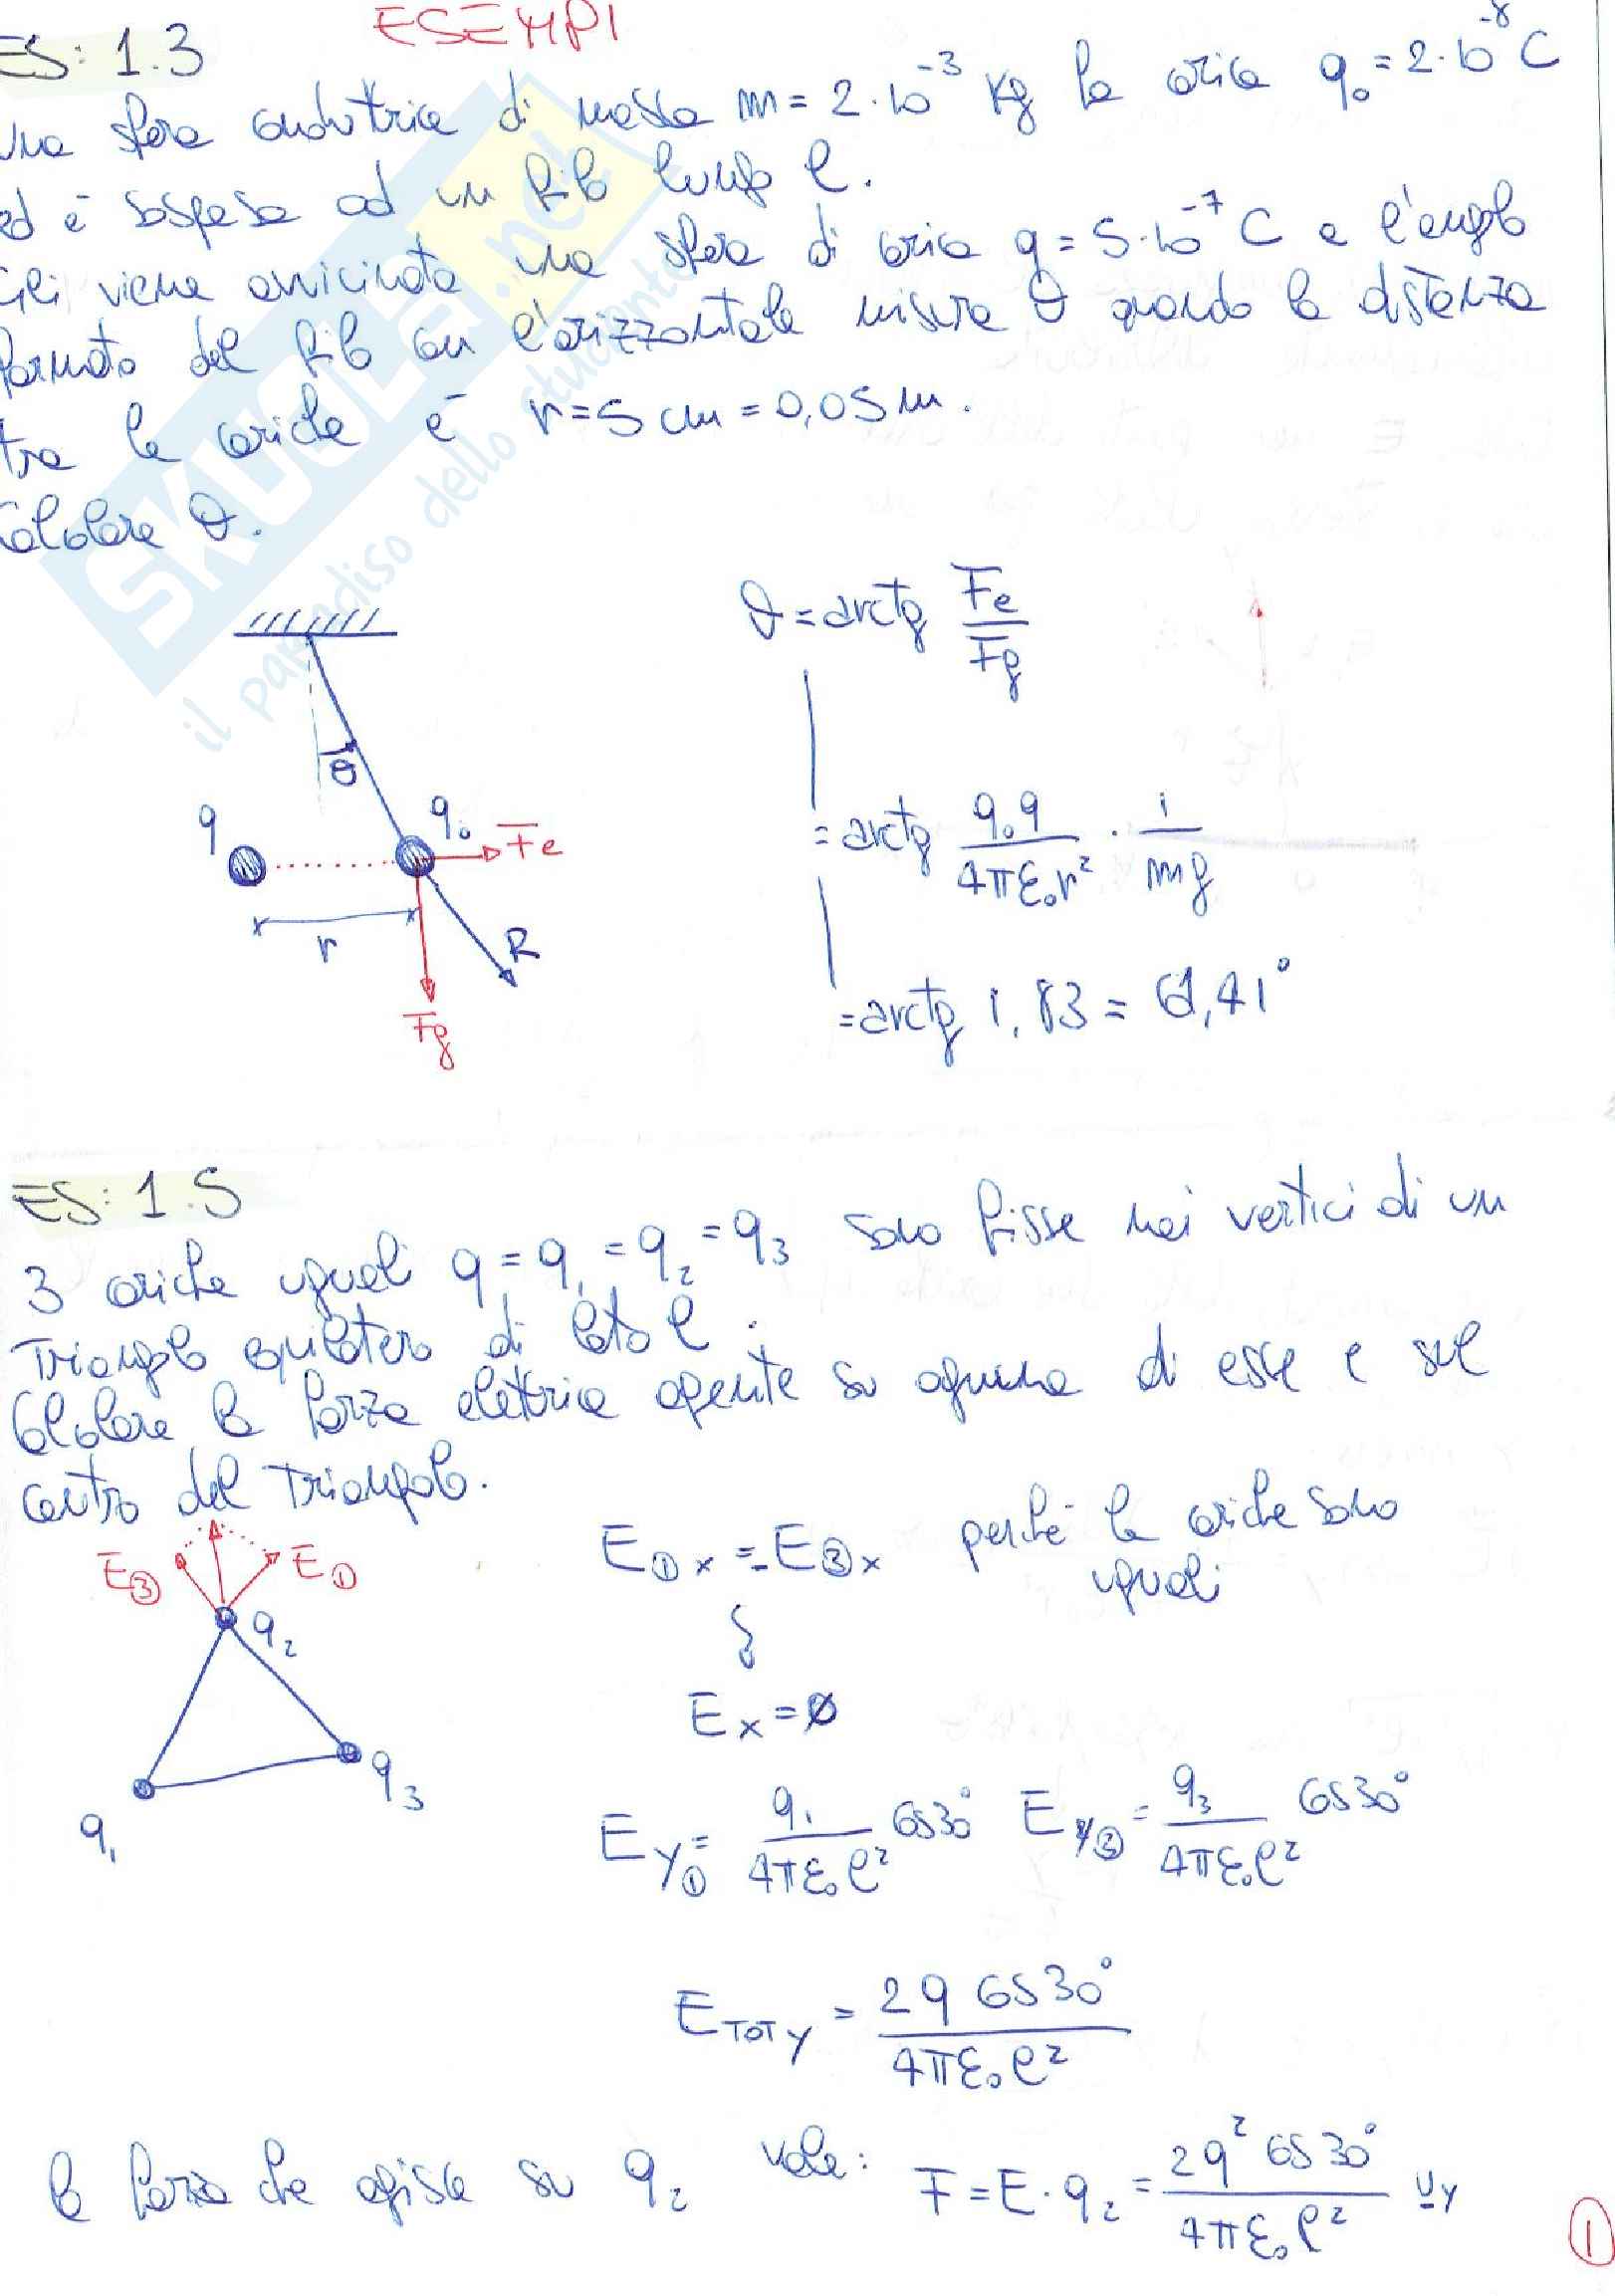 ESEMPI
ES: 1.3
una sfera conduttrice di massa m = 2·10⁻³ Kg ha carica q₀ = 2·10⁻⁸ C
ed è sospesa ad un filo lungo l.
Gli viene avvicinata una sfera di carica q = 5·10⁻⁷ C e l'angolo
formato dal filo con l'orizzontale misura θ quando la distanza
tra le cariche è r = 5 cm = 0,05 m.
Calcolare θ.
θ = arctg Fe/Fg
θ
q
q₀
Fe
= arctg q₀q/4πε₀r² · 1/mg
r
R
Fg
= arctg 1,83 = 61,41°
ES: 1.5
3 cariche uguali q = q₁ = q₂ = q₃ sono fisse nei vertici di un
triangolo equilatero di lato l.
Calcolare la forza elettrica agente su ognuna di esse e sul
centro del triangolo.
E③ E①
E①x = -E③x perché le cariche sono
uguali
q₂
Ex = ∅
q₃
q₁
Ey① = q₁/4πε₀l² cos30° Ey③ = q₃/4πε₀l² cos30°
E TOT y = 2q cos30°/4πε₀l²
la forza che agisce su q₂ vale: F = E·q₂ = 2q² cos30°/4πε₀l² uy
①
SKUOLA.net
il paradiso dello studente